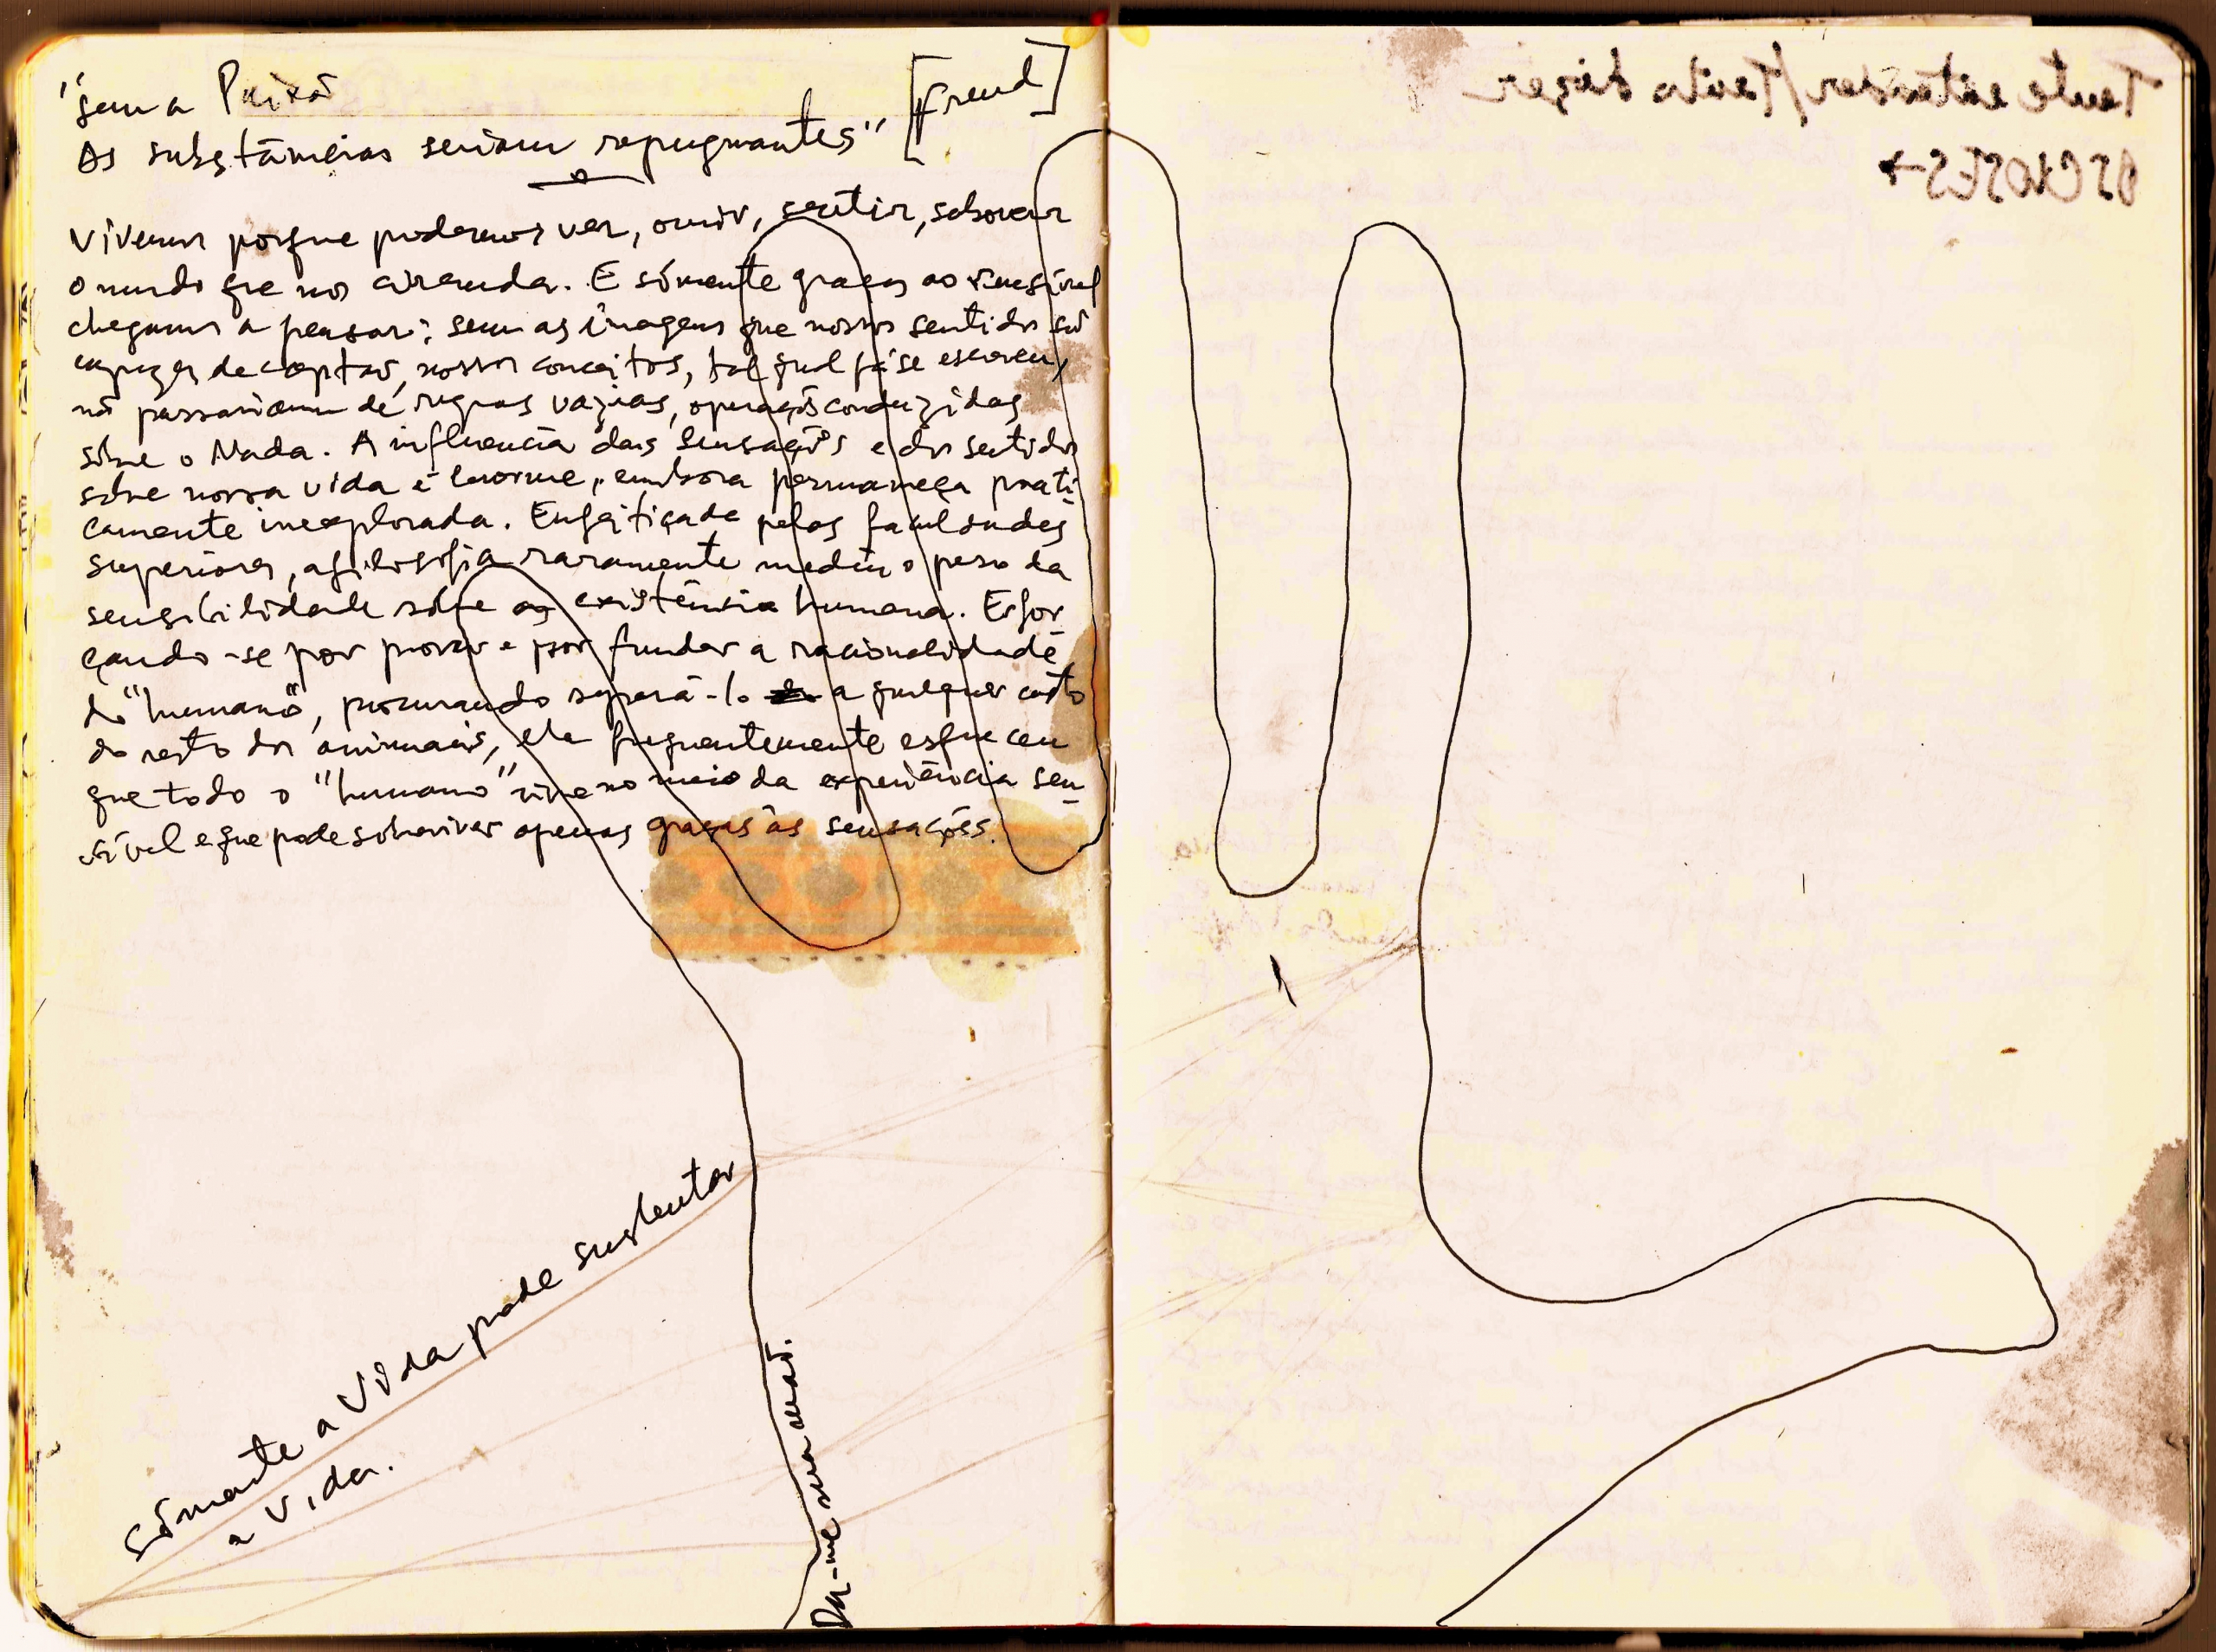 "sem a Paixão
As substâncias seriam repugnantes" [Freud]
Vivemos porque podemos ver, ouvir, sentir, saborear
o mundo que nos circunda. E sómente graças ao sensível
chegamos a pensar: sem as imagens que nossos sentidos são
capazes de captar, nossos conceitos, tal qual já se escreveu,
não passariam de regras vazias, operações conduzidas
sôbre o Nada. A influencia das sensações e dos sentidos
sôbre nossa vida é enorme, embora permaneça prati-
camente inexplorada. Enfeitiçada pelas faculdades
superiores, a filosofia raramente mediu o peso da
sensibilidade sôbre a existência humana. Esfor-
çando-se por provar e por fundar a racionalidade
do "humano", procurando separá-lo a qualquer custo
do resto dos animais, ela frequentemente esqueceu
que todo o "humano" vive no meio da experiência sen-
sível e que pode sobreviver apenas graças às sensações.
Sómente a Vida pode sustentar
a vida.
Da-me sua mão.
Tente entender/Tenta dizer
PSICNOSES→